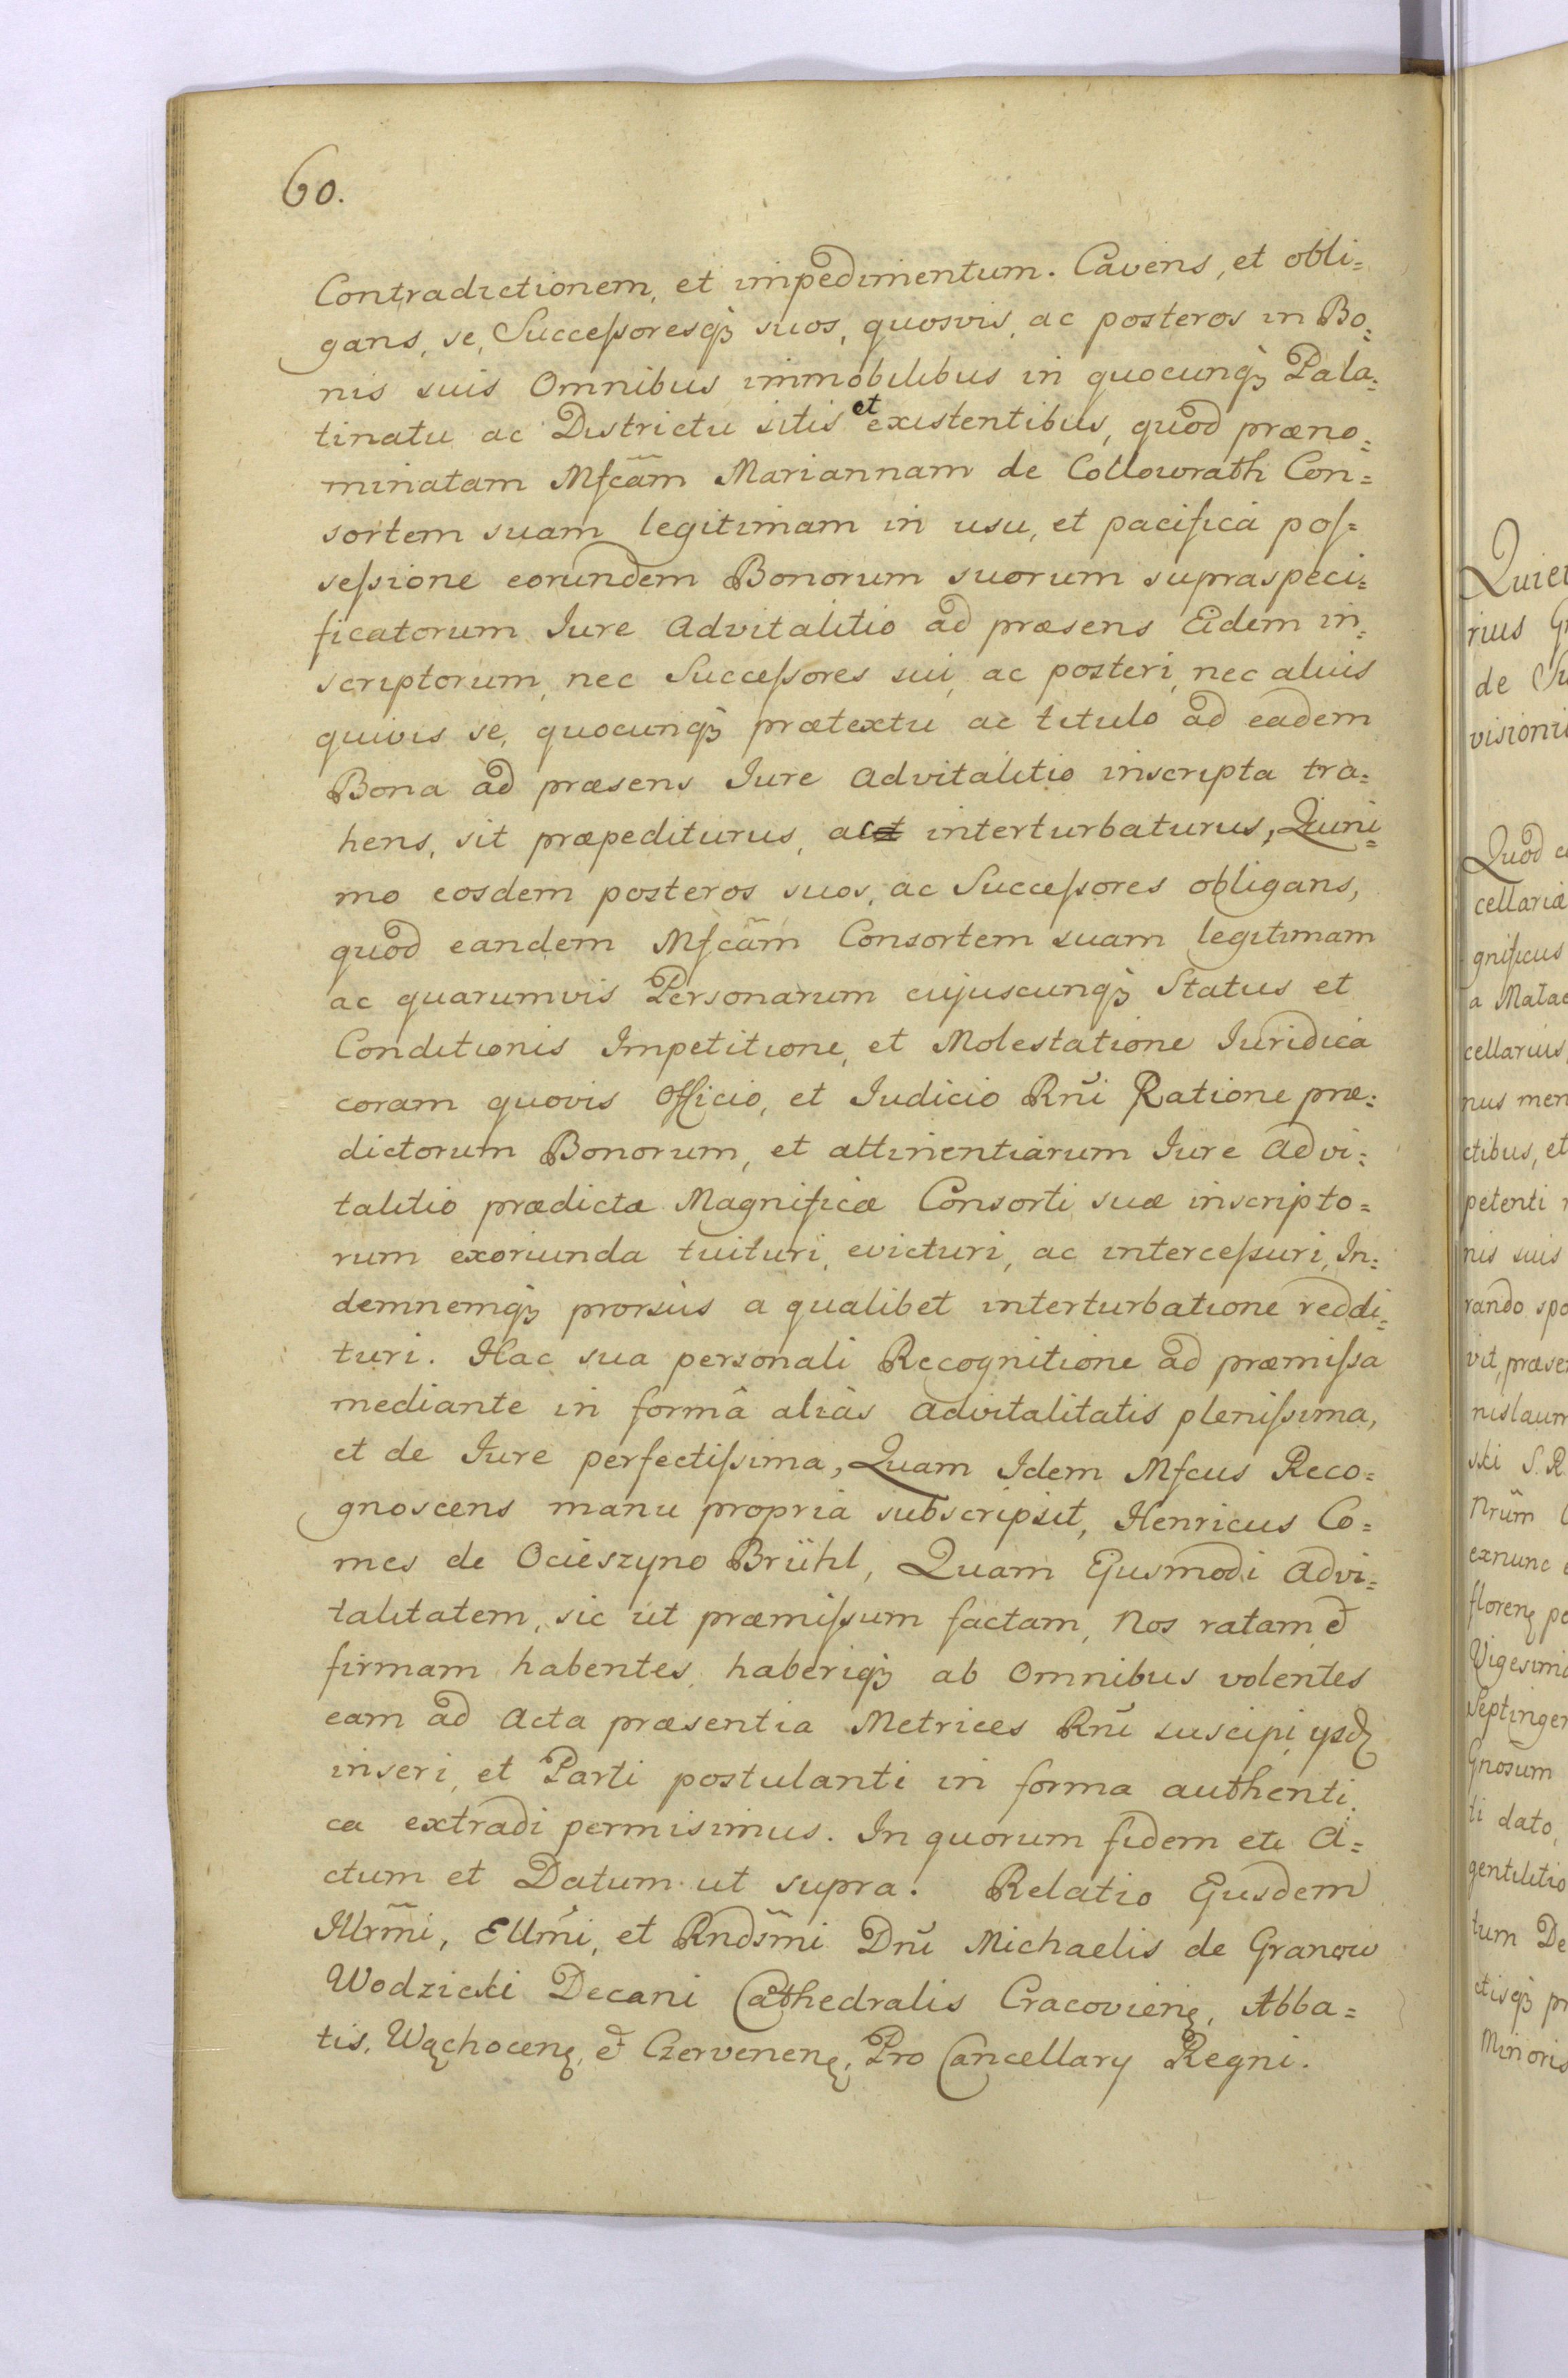 60.
Contradictionem, et impedimentum. Cavens, et obli=
gans, se, Successoresq3 suos, quosvis, ac posteros in Bo=
nis suis Omnibus immobilibus in quocunq3 Pala=
tinatu ac Districtu sitis et existentibus, quod præno=
minatam Mfcam̃ Mariannam de Collowrath Con=
sortem suam legitimam in usu, et pacifica pos=
sessione eorundem Bonorum suorum supraspeci=
ficatorum Iure Advitalitio ad præsens Eidem in=
scriptorum, nec Successores sui, ac posteri, nec aluis
quivis se, quocunq3 prætextu ac titulo ad eadem
Bona ad præsens Iure Advitalitio inscripta tra=
hens, sit præpediturus, ac interturbaturus, Quni=
mo eosdem posteros suos, ac Successores obligans,
quod eandem Mfcam̃ Consortem suam legitimam
ac quarumvis Personarum cujuscunq3 Status et
Conditionis Impetitione, et Molestatione Iuridica
coram quovis Officio, et Iudicio Rnĩ Ratione præ=
dictorum Bonorum, et attinentiarum Iure Advi=
talitio prædictæ Magnificæ Consorti suæ inscripto=
rum exoriunda tuituri, evicturi, ac intercessuri, In=
demnemq3 prorsus a qualibet interturbatione reddi=
turi. Hac sua personali Recognitione ad præmissa
mediante in formâ aliàs Advitalitatis plenissima,
et de Iure perfectissima, Quam Idem Mfcus Reco=
gnoscens manu propria subscripsit, Henricus Co=
mes de Ocieszyno Brühl, Quam Ejusmodi Advi=
talitatem, sic ut præmissum factam, Nos ratam et
firmam habentes, haberiq3 ab Omnibus volentes
eam ad Acta præsentia Metrices Rnĩ suscipi, ysd
inseri, et Parti postulanti in forma authenti=
ca extradi permisimus. In quorum fidem etc A=
ctum et Datum ut supra. Relatio Ejusdem
Illrmĩ, Ellmĩ, et Rndsmĩ Dnĩ Michaelis de Granow
Wodzicki Decani Cathedralis Cracovien, Abba=
tis, Wąchocen, et Czervenen, Pro Cancellary Regni.
Quiet
rius G
de
visioni
Quod c
cellariæ
gnificus
a Malac
cellarius,
nus men
ctibus, et
petenti
nis suis
rando spo
vit, præse
nislaum
ski S. R
Nrum̃
exnunc
floren po
Vigesima
Septinge
Gnosum
ti dato,
gentilitio
tum De
ctisq3 pr
Minoris